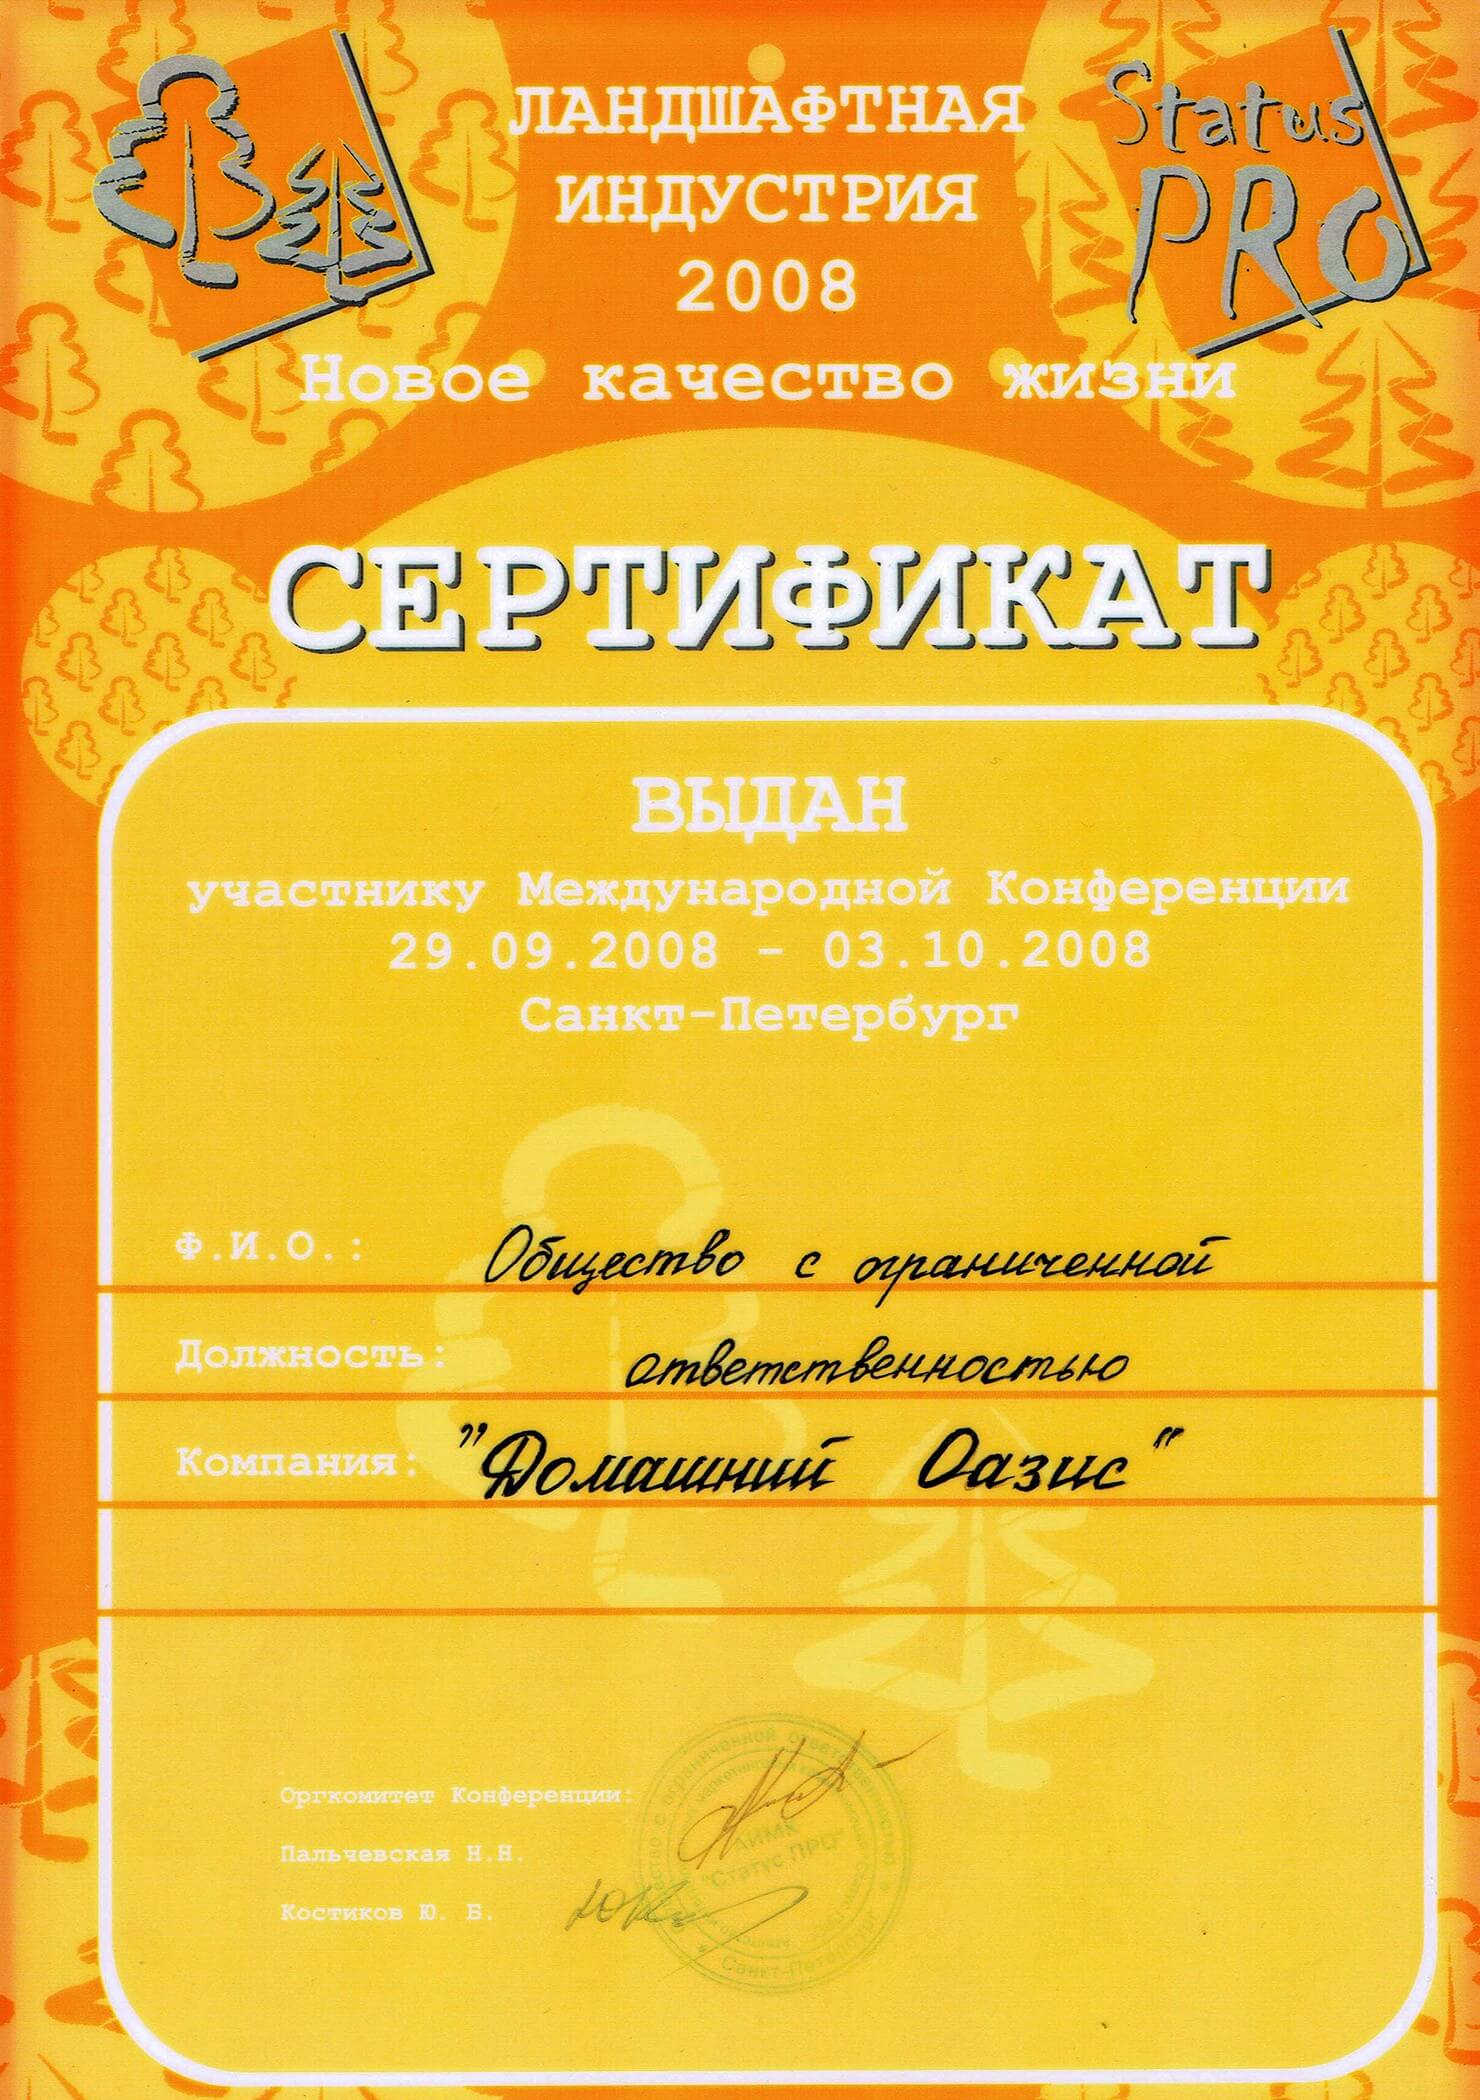 ЛАНДШАФТНАЯ
ИНДУСТРИЯ
2008
Status
PRO
Новое качество жизни
СЕРТИФИКАТ
ВЫДАН
участнику Международной Конференции
29.09.2008 - 03.10.2008
Санкт-Петербург
Ф.И.О.: Общество с ограниченной
Должность: ответственностью
Компания: "Домашний Оазис"
Оргкомитет Конференции:
Пальчевская Н.Н.
Костиков Ю. Б.
с ограниченной ответственностью
ЛИМК
"Статус ПРО"
Санкт-Петербург